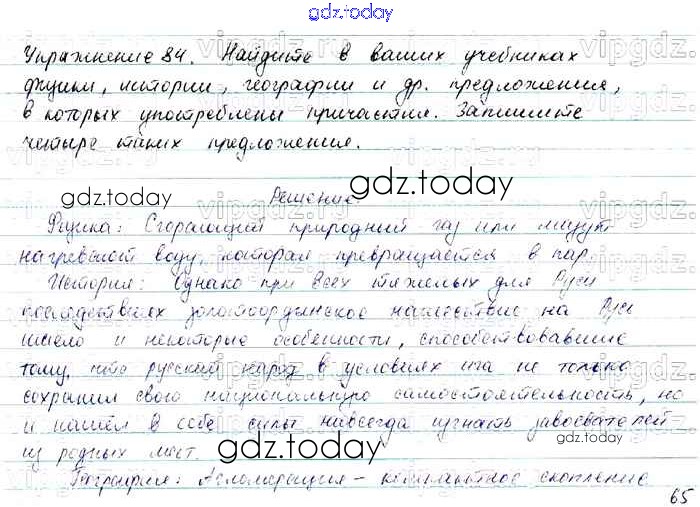 gdz.today
Упражнение 84. Найдите в ваших учебниках
физики, истории, географии и др. предложения,
в которых употреблены причастия. Запишите
четыре таких предложения.
gdz.today
gdz.today
Решение
Физика: Сгорающий природный газ или мазут
нагревают воду, которая превращается в пар.
История: Однако при всех тяжелых для Руси
последствиях золотоордынское нашествие на Русь
имело и некоторые особенности, способствовавшие
тому, что русский народ в условиях ига не только
сохранил свою национальную самостоятельность, но
и нашёл в себе силы навсегда изгнать завоевателей
из родных мест.
gdz.today
gdz.today
География: Агломерация – компактное скопление
65